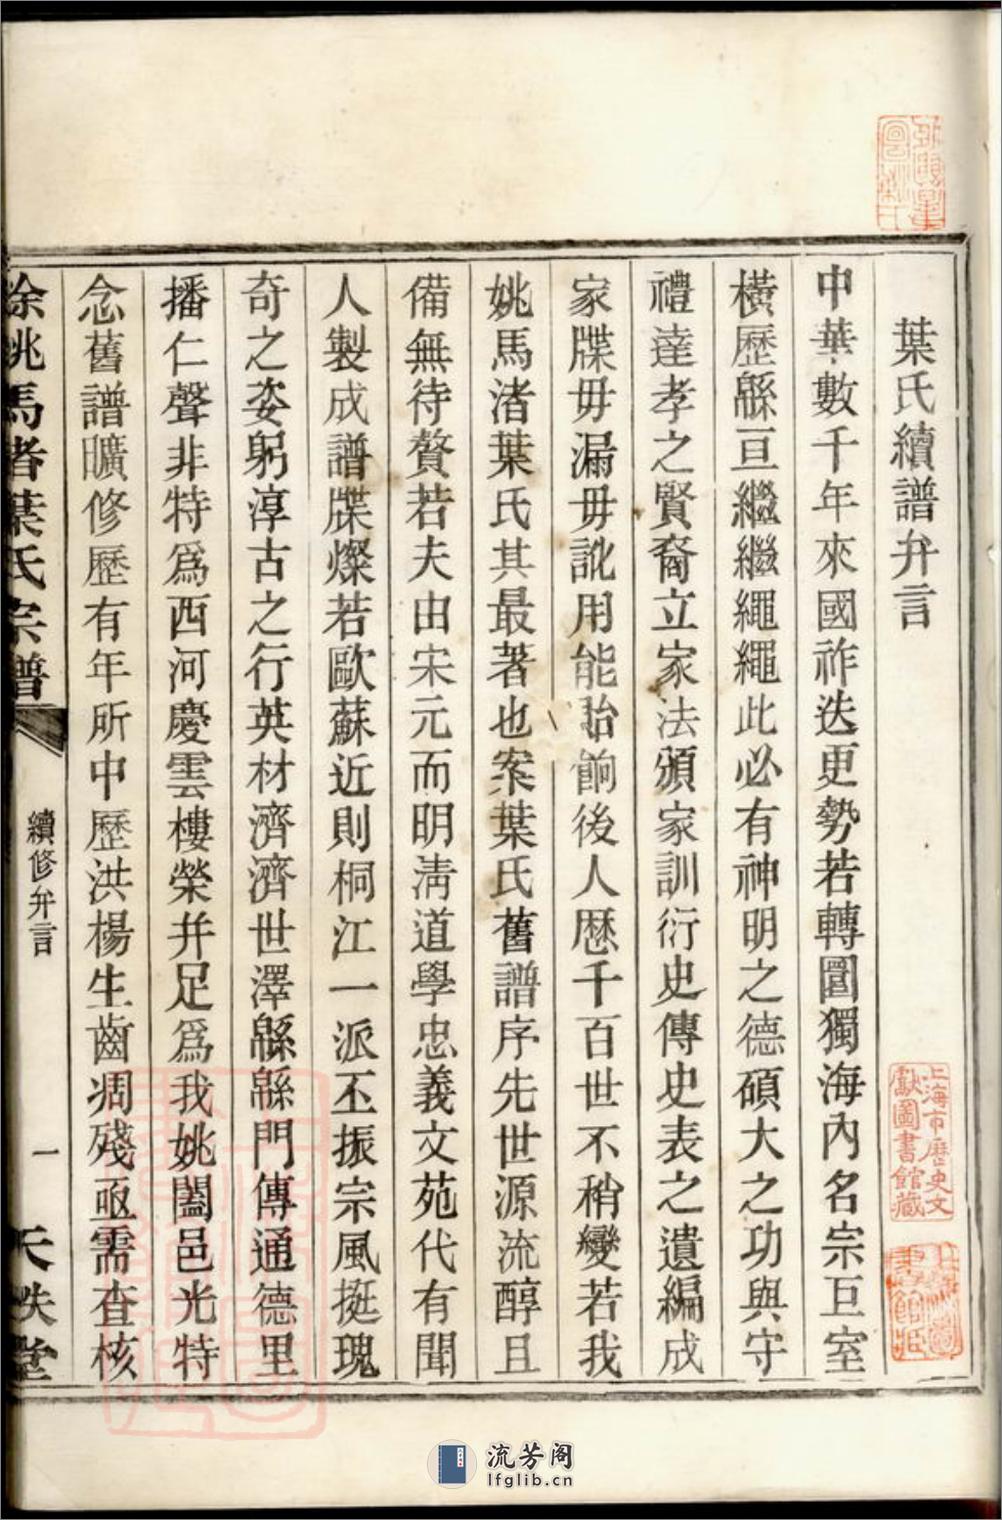 葉氏續譜弁言
中華數千年來國祚迭更勢若轉圜獨海內名宗巨室
橫歷緜亘繼繼繩繩此必有神明之德碩大之功與守
禮達孝之賢裔立家法頒家訓衍史傳史表之遺編成
家牒毋漏毋訛用能貽餉後人歷千百世不稍變若我
姚馬渚葉氏其最著也案葉氏舊譜序先世源流醇且
備無待贅若夫由宋元而明淸道學忠義文苑代有聞
人製成譜牒燦若歐蘇近則桐江一派丕振宗風挺瑰
奇之姿躬淳古之行英材濟濟世澤緜緜門傳通德里
播仁聲非特爲西河慶雲樓榮幷足爲我姚闔邑光特
念舊譜曠修歷有年所中歷洪楊生齒凋殘亟需查核
餘姚馬渚葉氏宗譜
續修弁言
一
天跌堂
上海市歷史文
獻圖書館藏
流芳阁
lfglib.cn